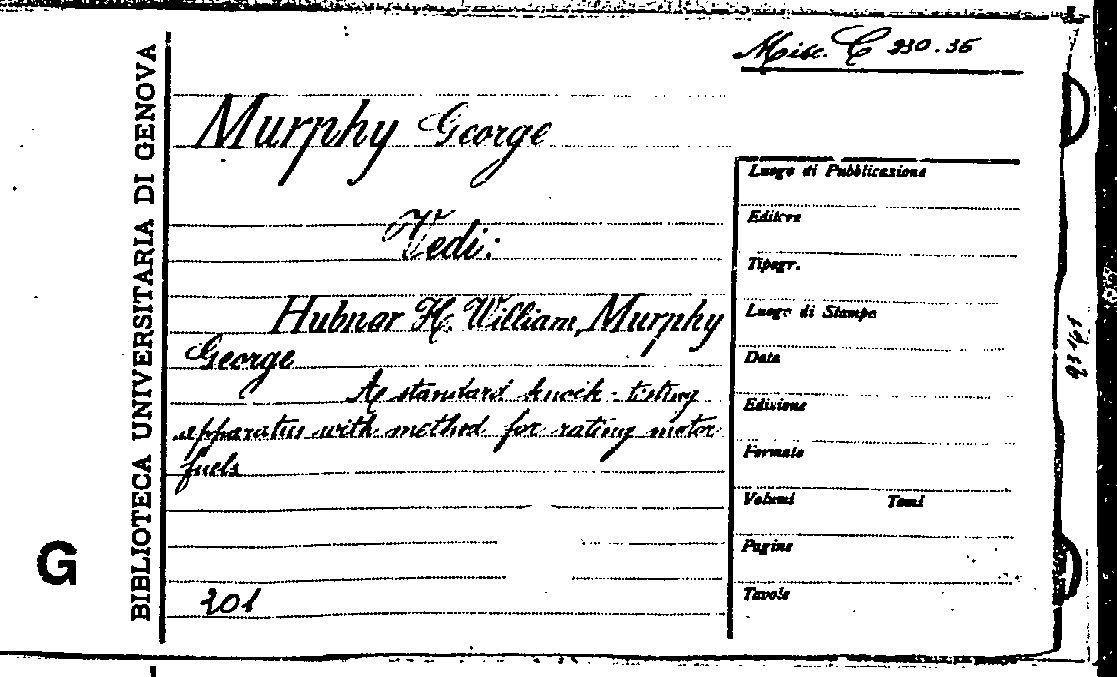 Misc. C 230.36
Murphy George
Vedi:
Hubner H. William, Murphy
George
A standard knock-testing
apparatus with method for rating motor
fuels
201
BIBLIOTECA UNIVERSITARIA DI GENOVA
G
Luogo di Pubblicazione
Editore
Tipogr.
Luogo di Stampa
Data
Edizione
Formato
Volumi Tomi
Pagine
Tavole